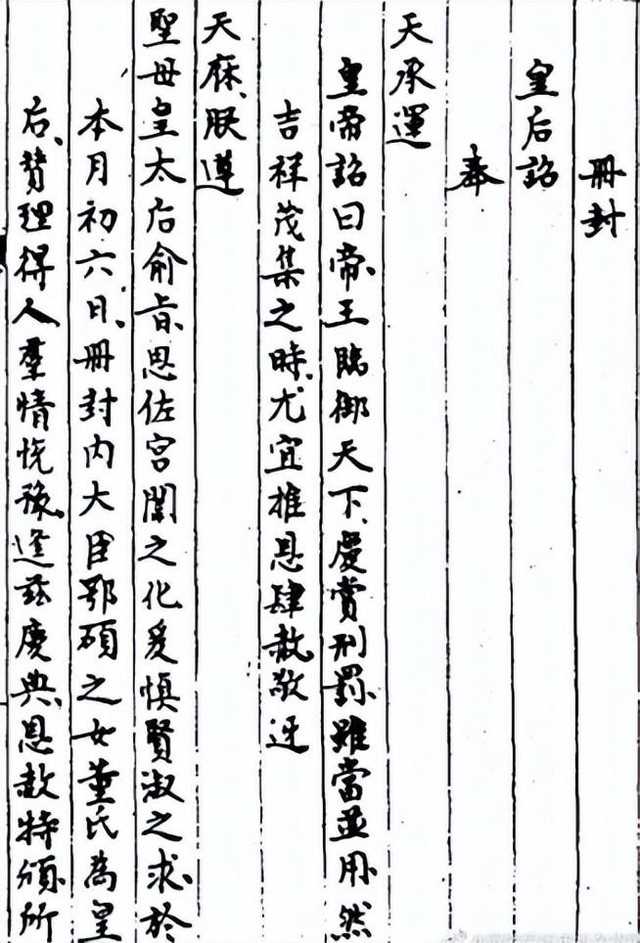 冊封
皇后詔
奉
天承運
皇帝詔曰帝王臨御天下、慶賞刑罰、雖當並用、然
吉祥茂集之時、尤宜推恩肆赦、敬迓
天庥、朕遵
聖母皇太后俞旨、思佐宮闈之化、爰慎賢淑之求、於
本月初六日、冊封内大臣鄂碩之女董氏為皇
后、贊理得人、羣情悅豫、逢茲慶典、恩赦特頒、所